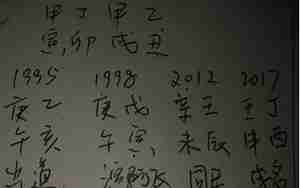 甲丁甲乙
寅卯戌丑
1995 1998 2012 2017
庚乙 庚戊 辛壬 壬丁
午亥 午寅、未辰 申酉
出道